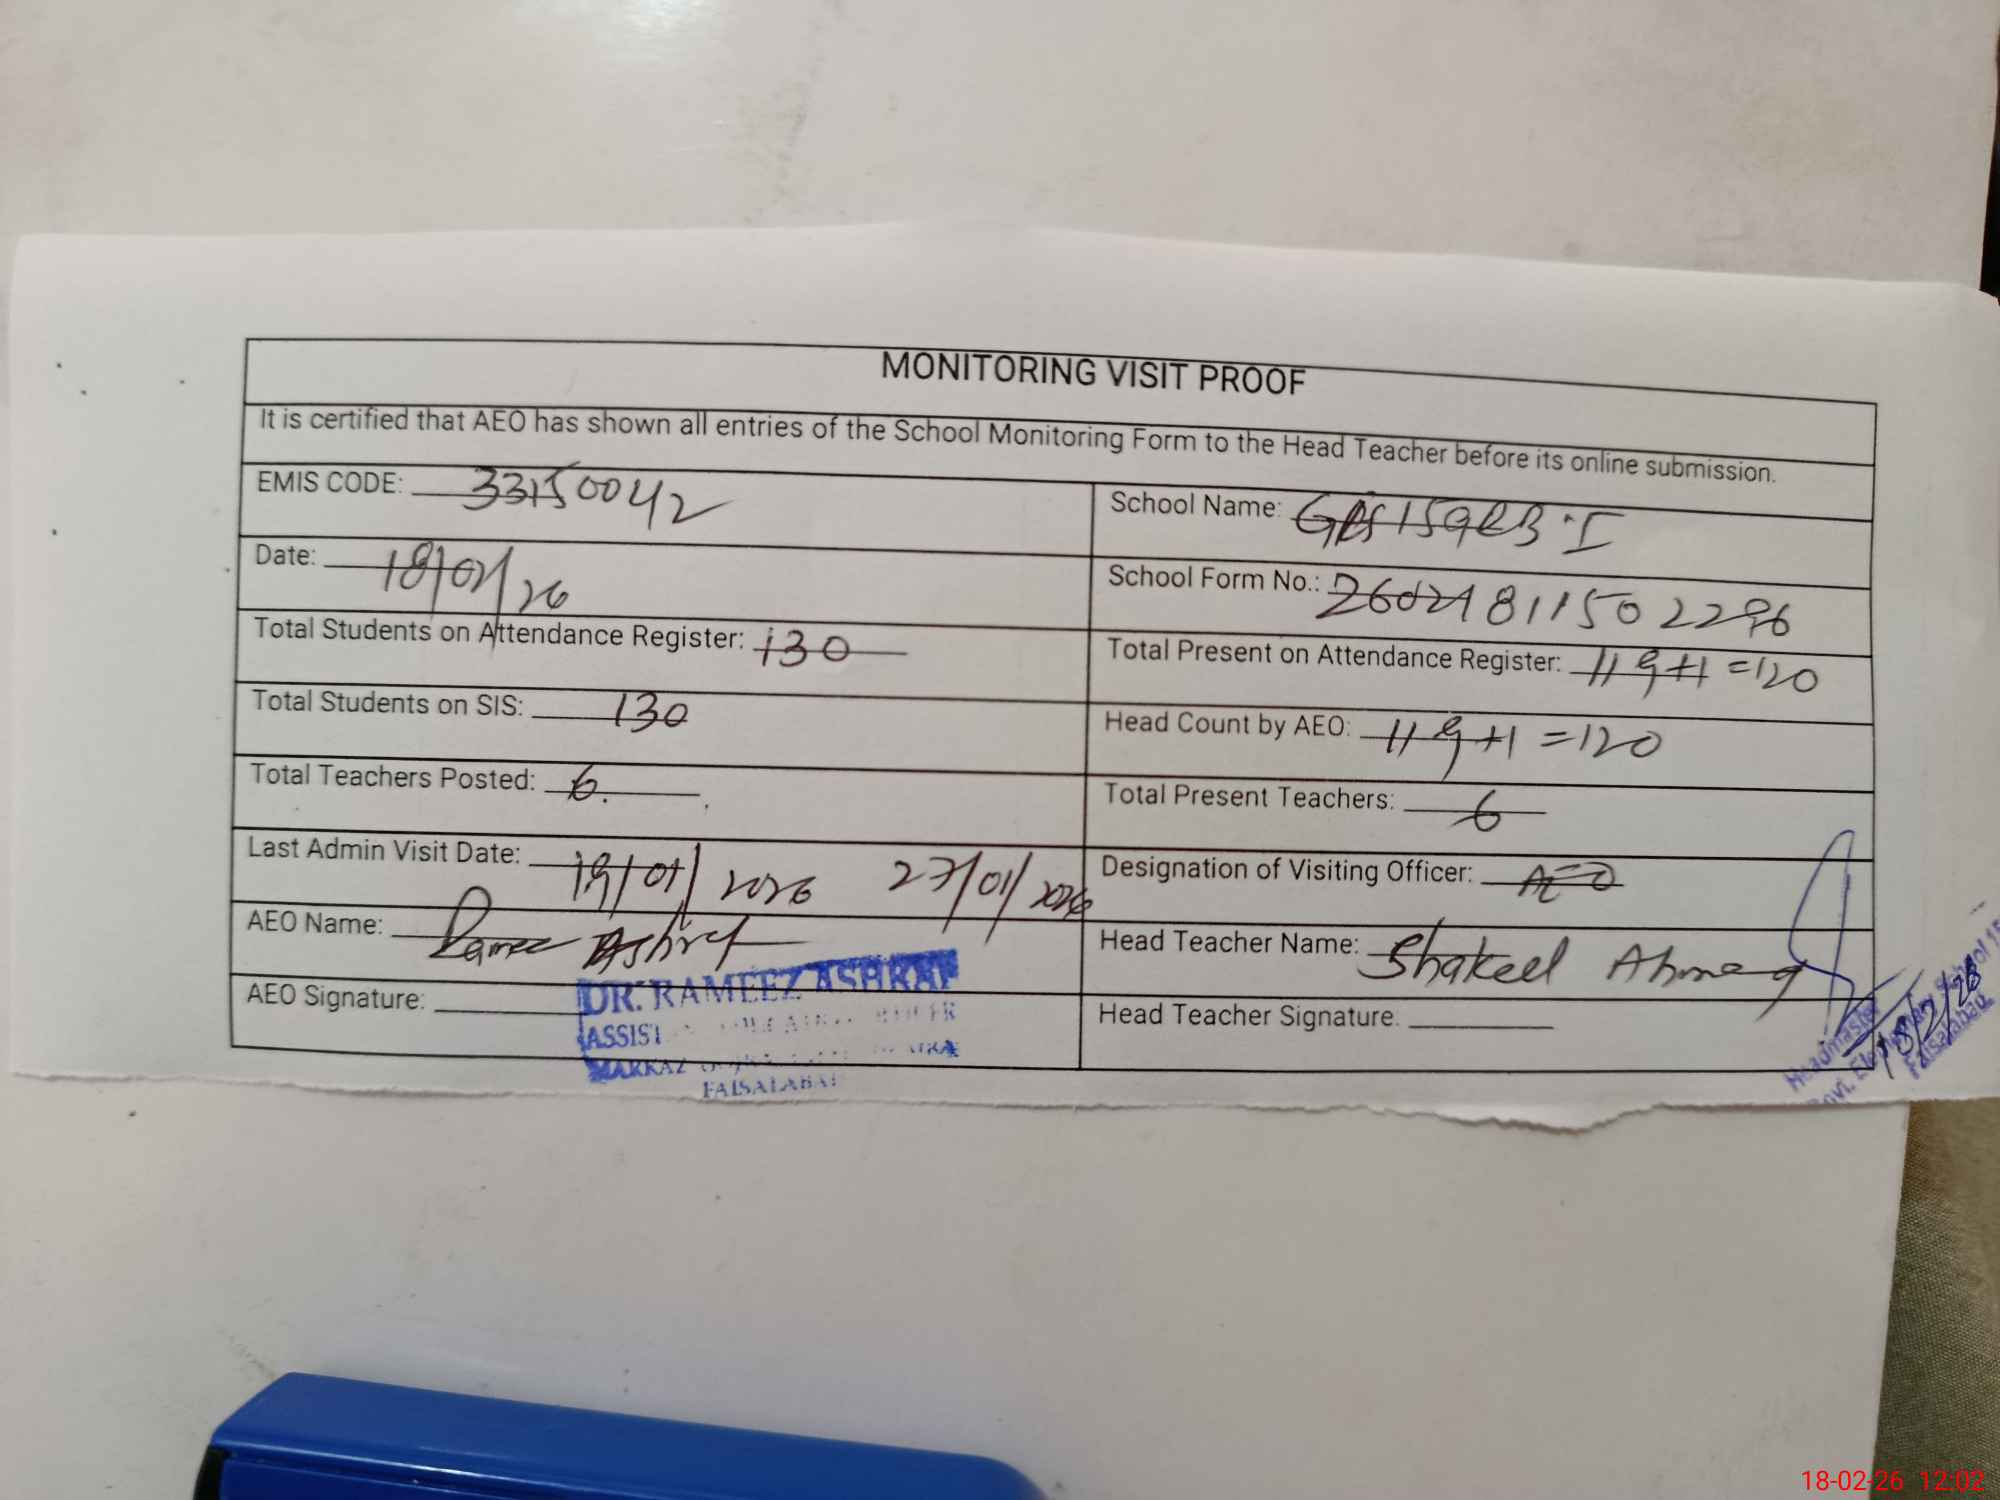 MONITORING VISIT PROOF
It is certified that AEO has shown all entries of the School Monitoring Form to the Head Teacher before its online submission.
EMIS CODE: 33150042
School Name: GPS 159 RB I
Date: 18/02/26
School Form No.: 26021811502296
Total Students on Attendance Register: 130
Total Present on Attendance Register: 119+1=120
Total Students on SIS: 130
Head Count by AEO: 119+1=120
Total Teachers Posted: 6.
Total Present Teachers: 6
Last Admin Visit Date: 19/01/2026 27/01/2026
Designation of Visiting Officer: AEO
AEO Name: Rameez Ashraf
Head Teacher Name: Shakeel Ahmed
AEO Signature:
DR. RAMEEZ ASHRAF
MARKAZ
FAISALABAD
Head Teacher Signature.
Headmaster
Govt. Elementary School
Faisalabad
18/2/26
18-02-26 12:02